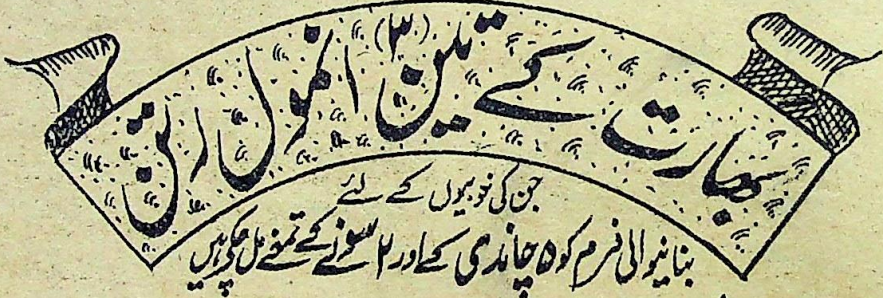 بھارت کے تین (۳) انمول رتن
جن کی خوبیوں کے لئے
بنانیوالی فرم کو ۵ چاندی کے اور ۲ سونے کے تمغے مل چکے ہیں